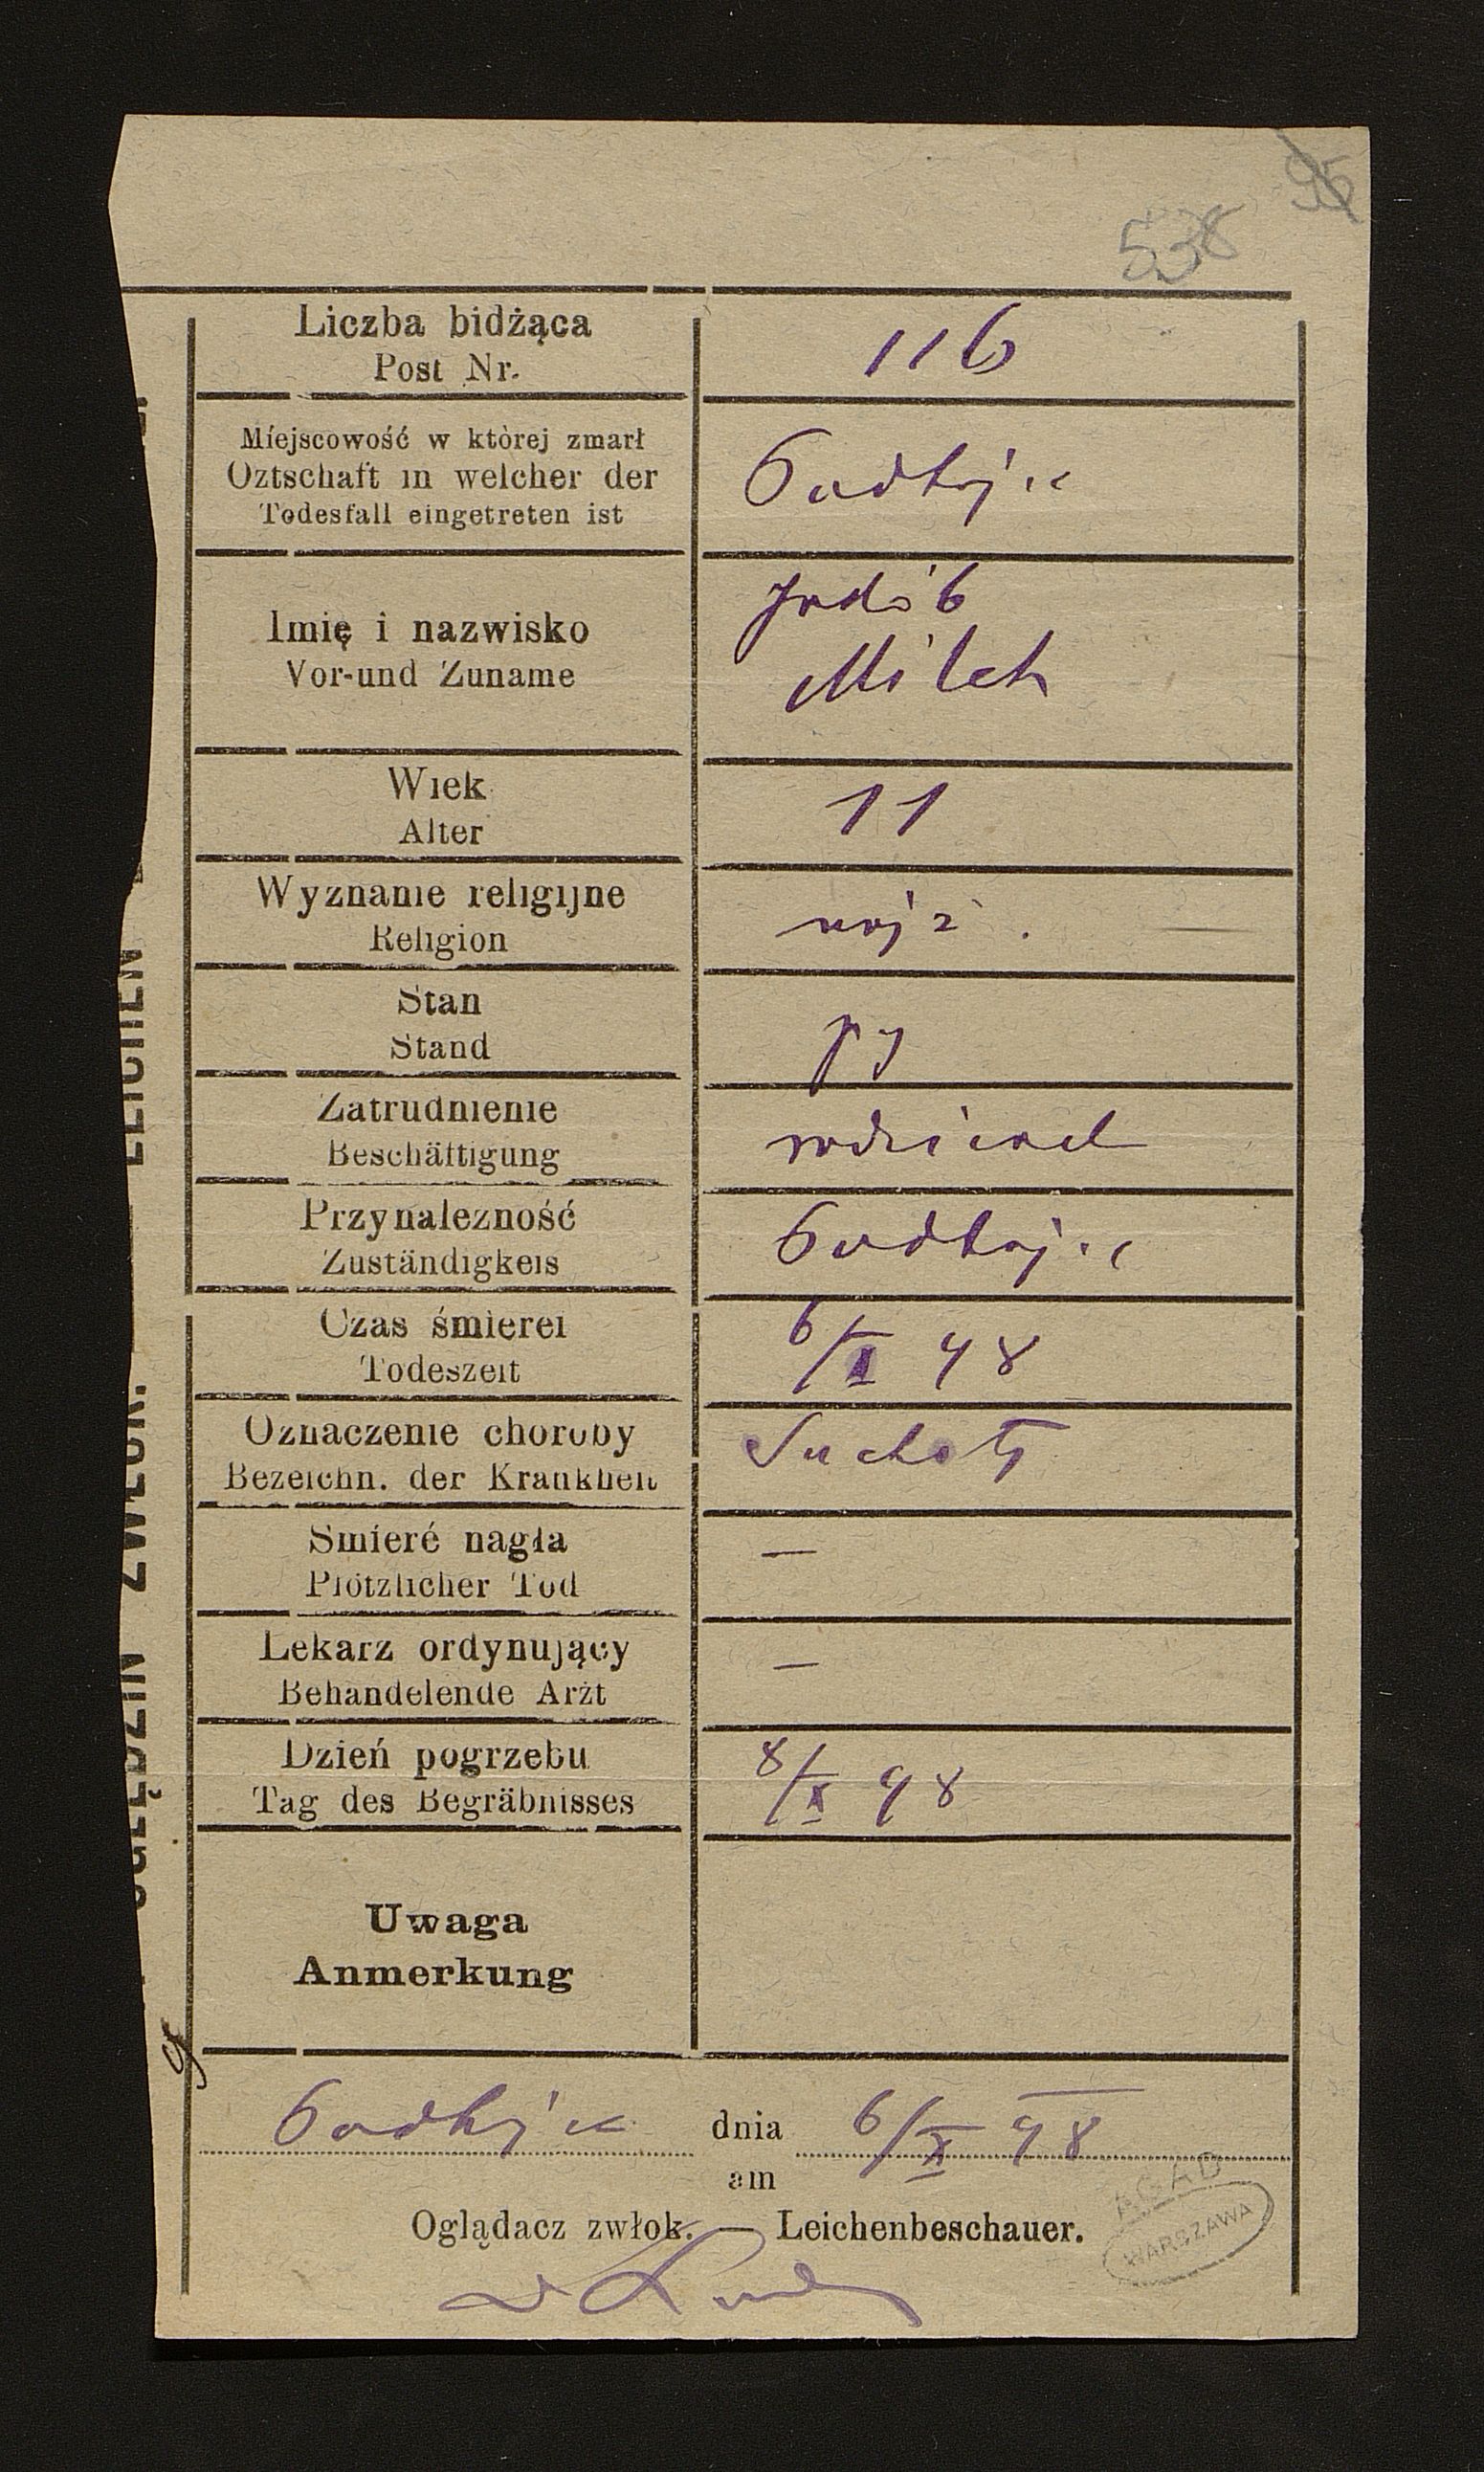 95
538
Liczba bidżąca
Post Nr.
116
Miejscowość w której zmarł
Oztschaft in welcher der
Todesfall eingetreten ist
Podhajce
Imię i nazwisko
Vor-und Zuname
Milch
Wiek
Alter
11
Wyznanie religijne
Religion
mojż.
Stan
Stand
Zatrudnienie
Beschäftigung
Przynalezność
Zuständigkeis
Podhajce
Czas śmierei
Todeszeit
6/X 98
Oznaczenie choroby
Bezeichn. der Krankheit
Suchoty
Smieré nagła
Plötzlicher Tod
—
Lekarz ordynujący
Behandelende Arzt
—
Dzień pogrzebu
Tag des Begräbnisses
8/X 98
Uwaga
Anmerkung
Podhajce dnia 6/X 98
am
Oglądacz zwłok. — Leichenbeschauer.
AGAD
WARSZAWA